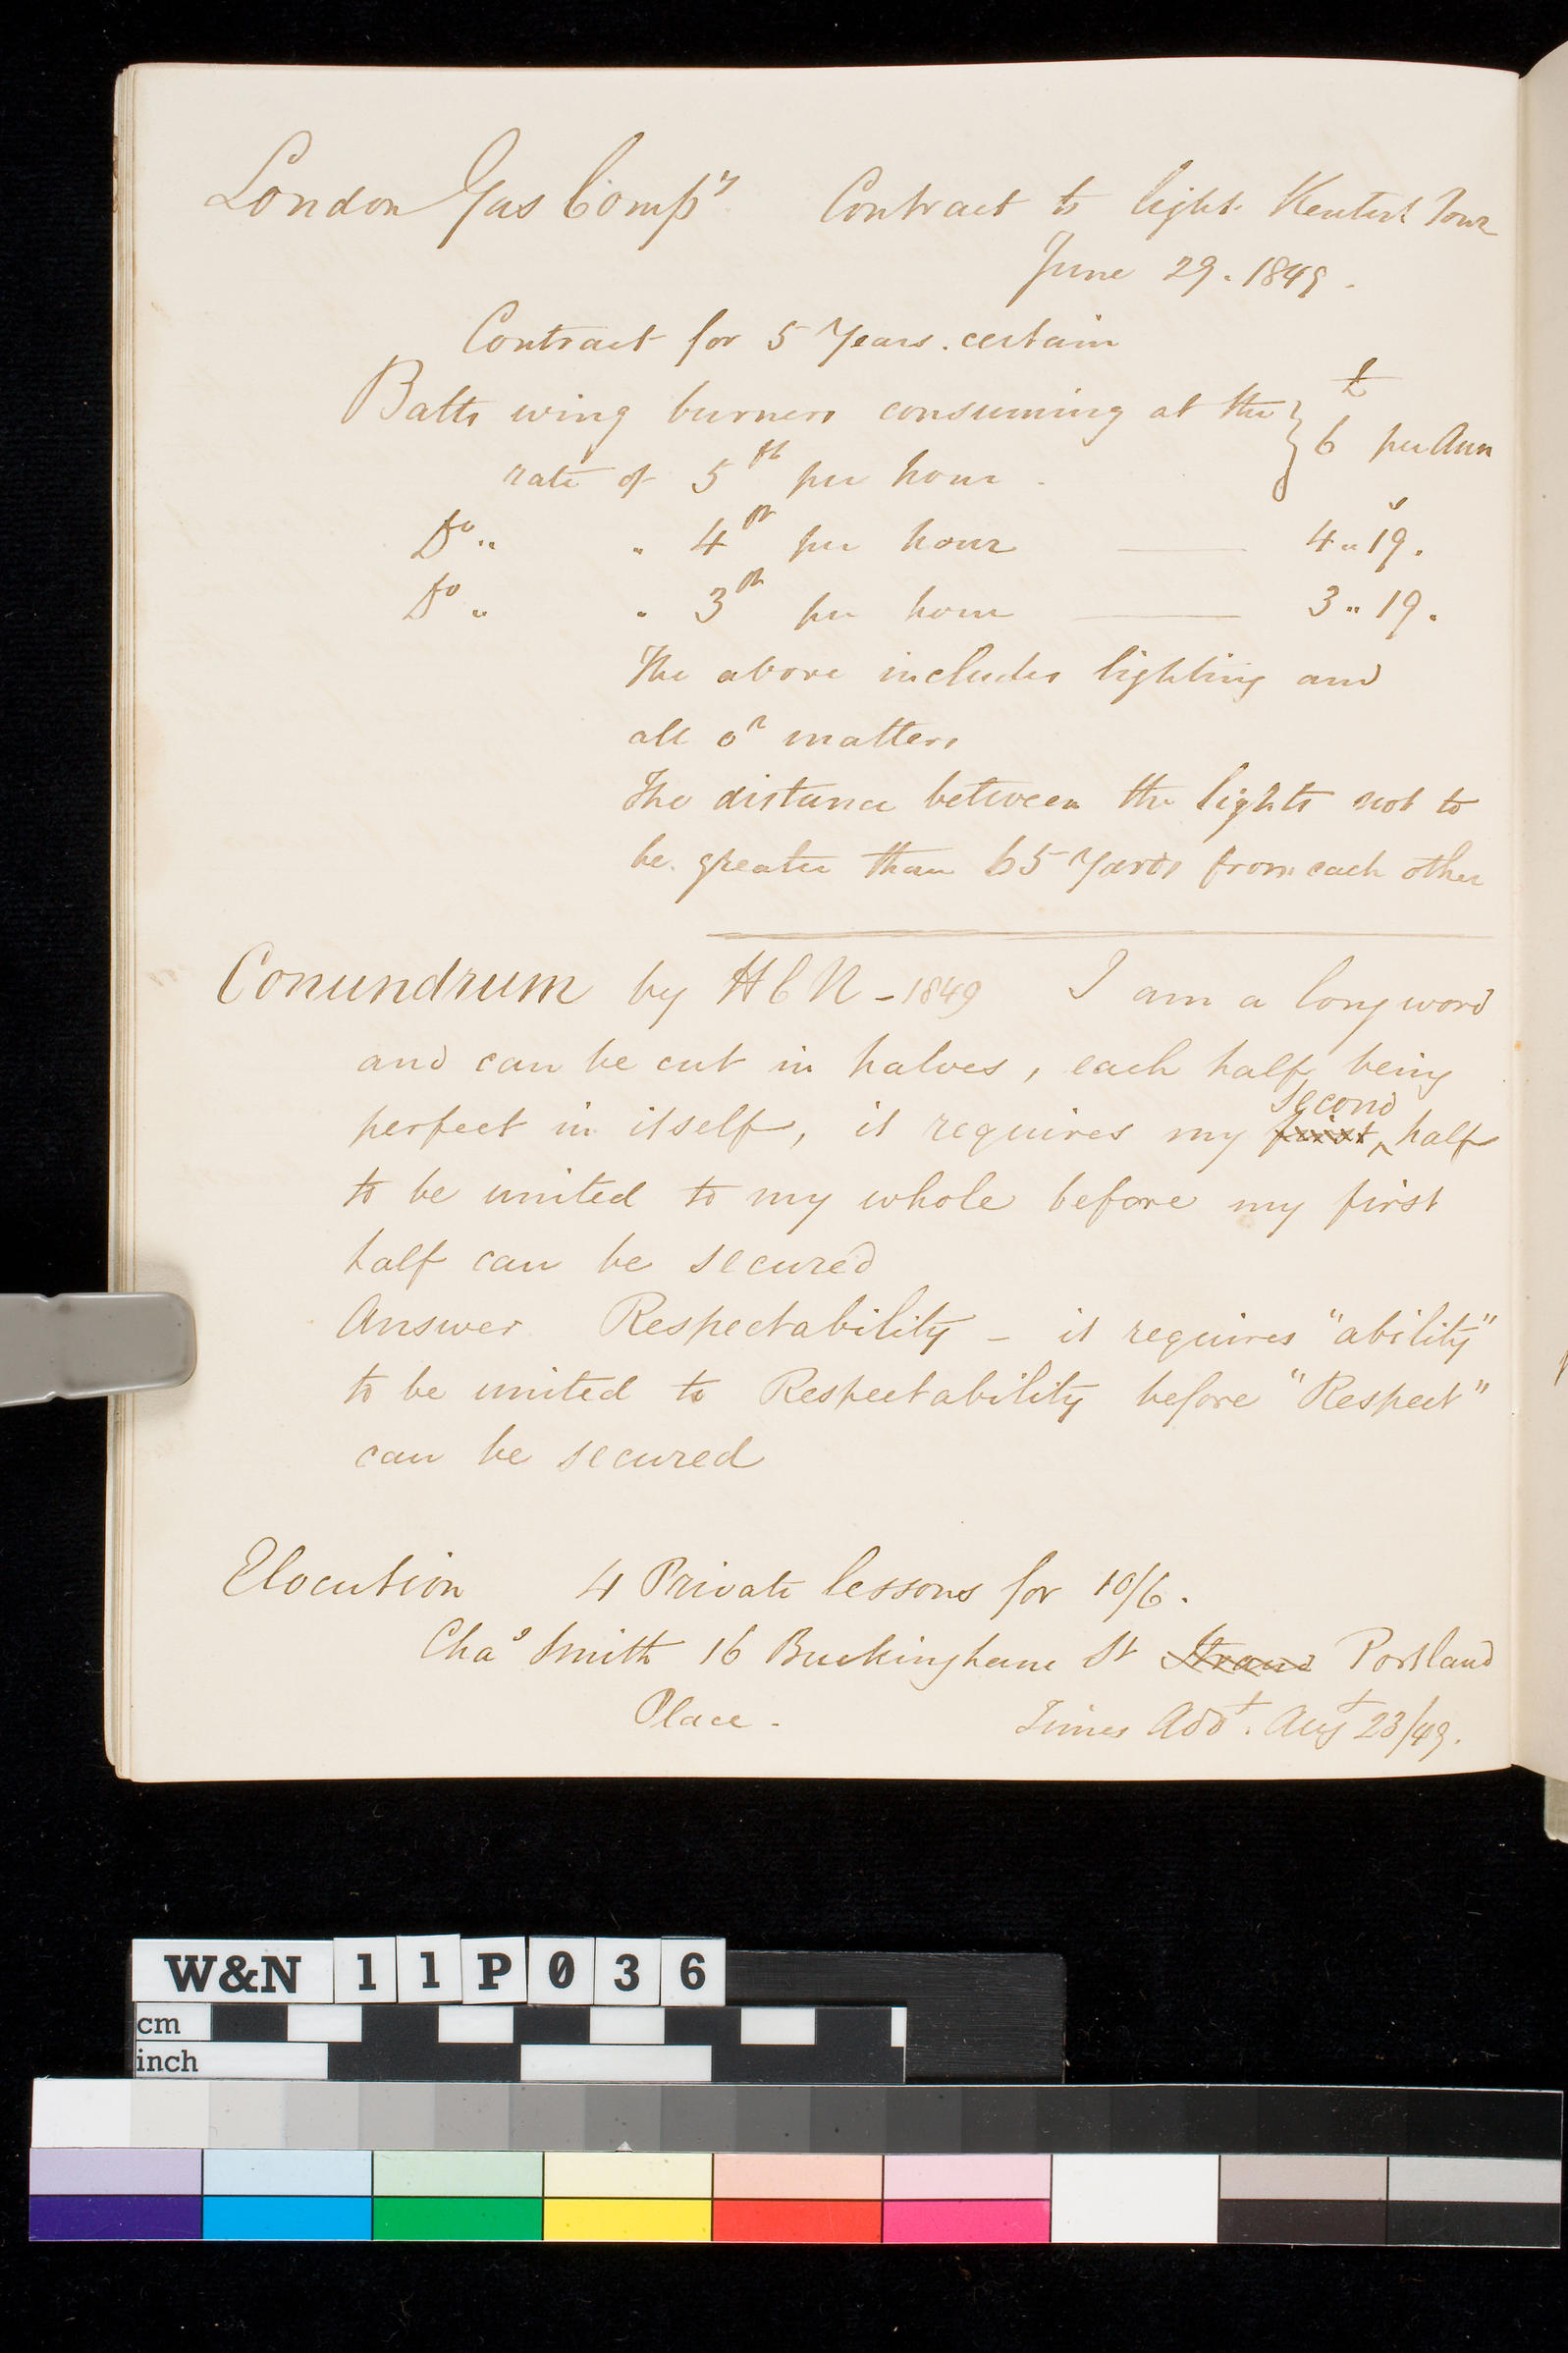 London Gas Compy Contract to light Kentish Town
June 29. 1849.
Contract for 5 Years. certain
Batts wing burners consuming at the } £
rate of 5 ft per hour. 6 per Ann
Do " " 4 ft per hour — 4 " 19 s.
Do " " 3 ft per hour — 3 " 19.
The above includes lighting and
all or matters
The distance between the lights not to
be greater than 65 Yards from each other
Conundrum by HCN - 1849 I am a long word
and can be cut in halves, each half being
perfect in itself, it requires my first second half
to be united to my whole before my first
half can be secured
Answer Respectability - it requires "ability"
to be united to Respectability before "Respect"
can be secured
Elocution 4 Private lessons for 10/6.
Chas Smith 16 Buckingham St Strand Portland
Place. Times Addt. Augt 23/49.
W&N 11P036
cm
inch